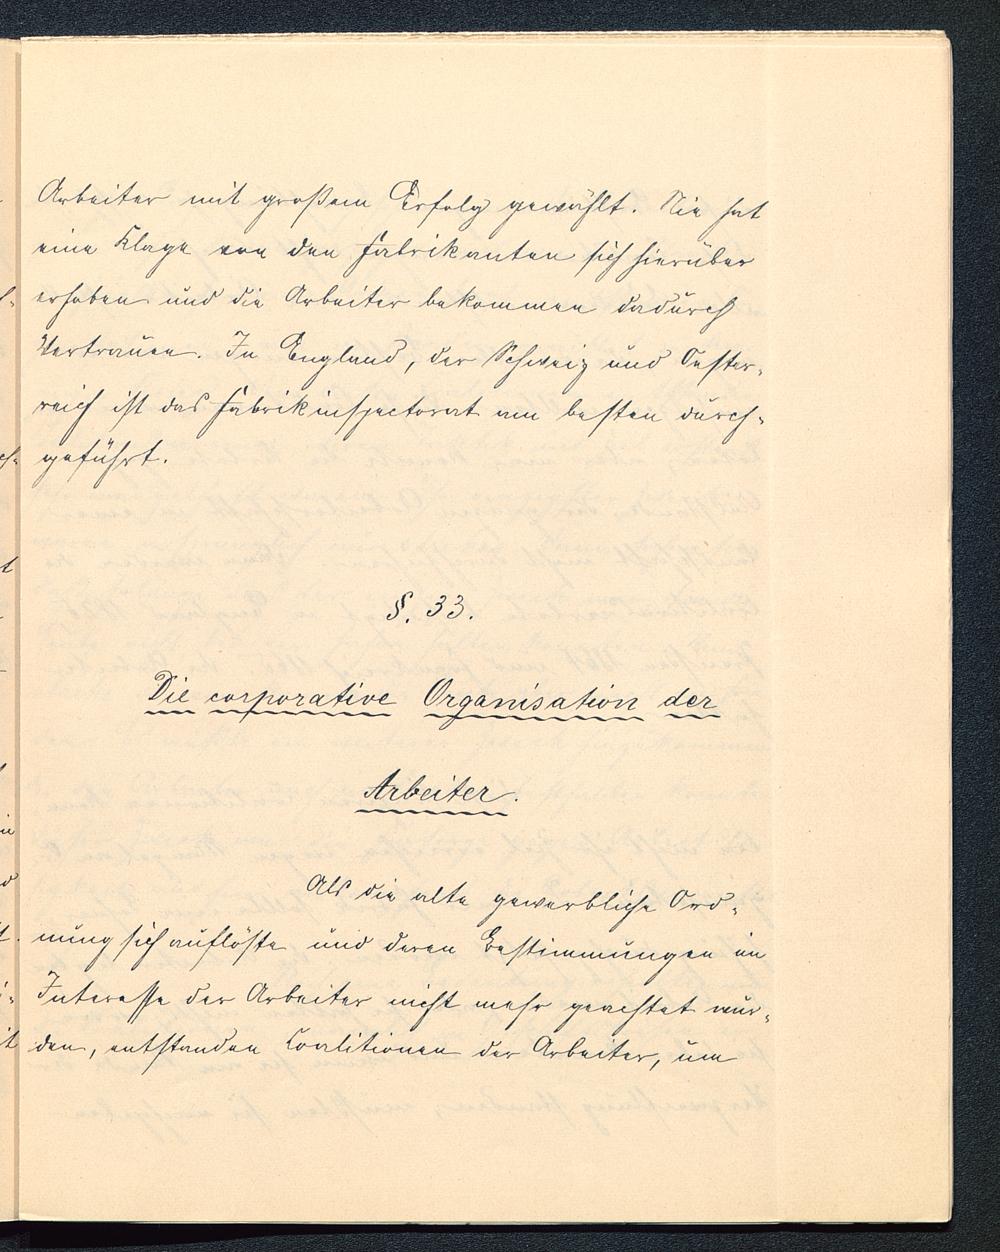 Arbeiter mit großem Erfolg gewählt. Nie hat
eine Klage von den Fabrikanten sich hierüber
erhoben und die Arbeiter bekommen dadurch
Vertrauen. In England, der Schweiz und Oester-
reich ist das Fabrikinspectorat am besten durch-
geführt.
§. 33.
Die corporative Organisation der
Arbeiter.
Als die alte gewerbliche Ord-
nung sich auflöste und deren Bestimmungen im
Interesse der Arbeiter nicht mehr geachtet wur-
den, entstanden Coalitionen der Arbeiter, um